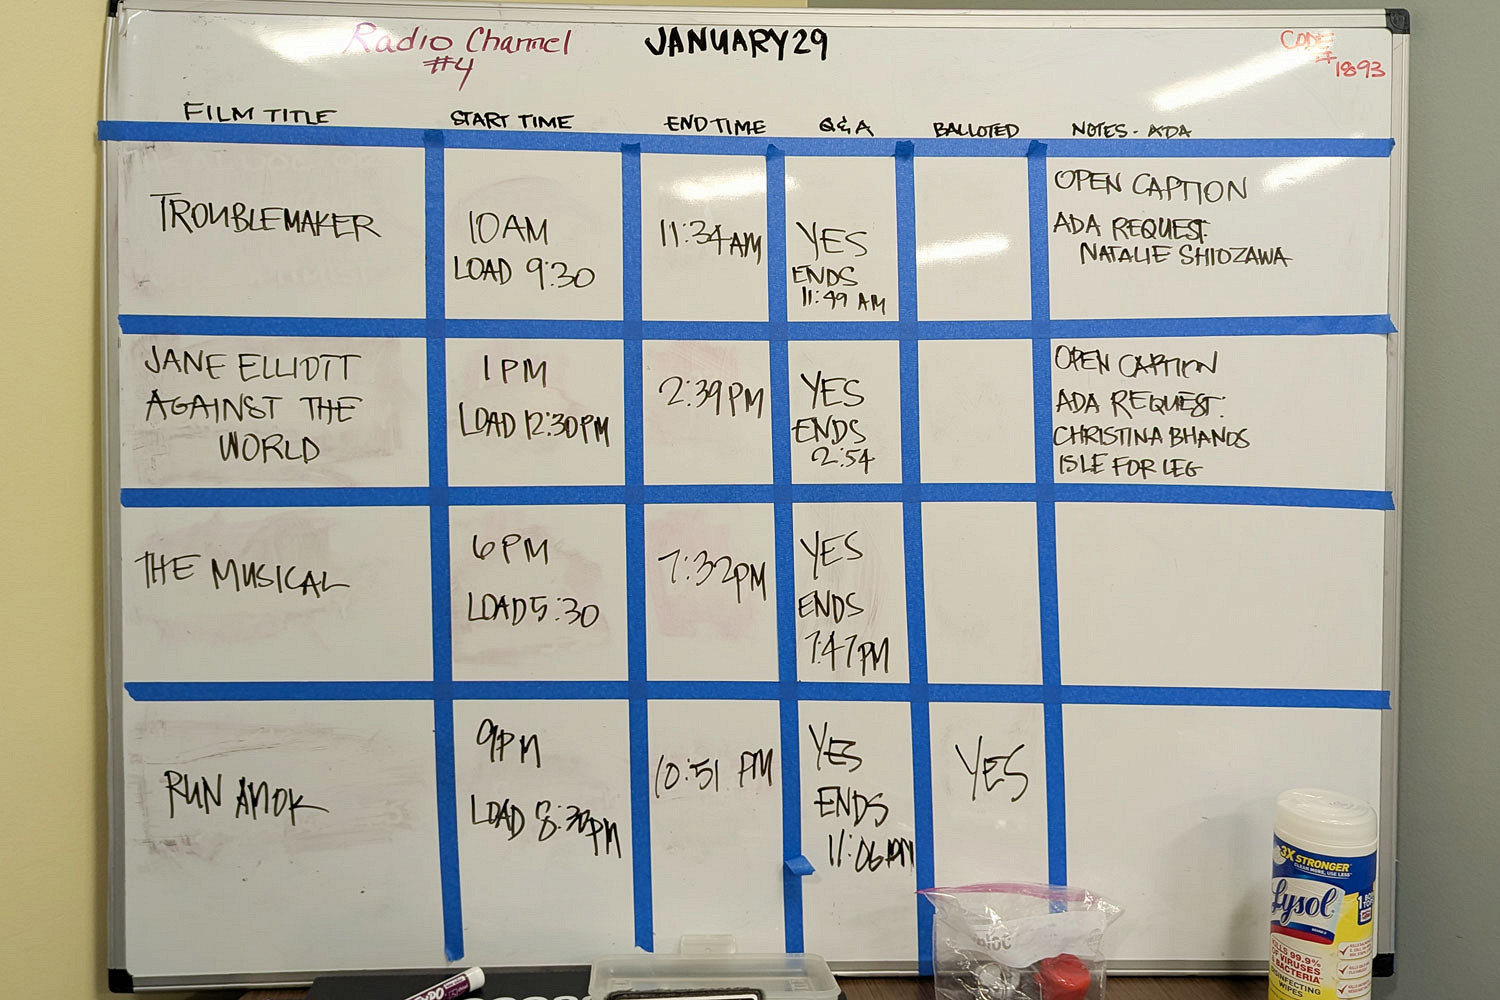 Radio Channel
#4
JANUARY 29
CODE
#
1893
FILM TITLE
START TIME
END TIME
Q&A
BALLOTED
NOTES - ADA
TROUBLEMAKER
10 AM
LOAD 9:30
11:34 AM
YES
ENDS
11:49 AM
OPEN CAPTION
ADA REQUEST:
NATALIE SHIOZAWA
JANE ELLIOTT
AGAINST THE
WORLD
1 PM
LOAD 12:30PM
2:39 PM
YES
ENDS
2:54
OPEN CAPTION
ADA REQUEST:
CHRISTINA BHANOS
ISLE FOR LEG
THE MUSICAL
6 PM
LOAD 5:30
7:32PM
YES
ENDS
7:47PM
RUN AMOK
9PM
LOAD 8:30PM
10:51 PM
YES
ENDS
11:06 PM
YES
3X STRONGER
CLEAN MORE, USE LESS
Lysol
KILLS 99.9%
OF VIRUSES
& BACTERIA
DISINFECTING
WIPES